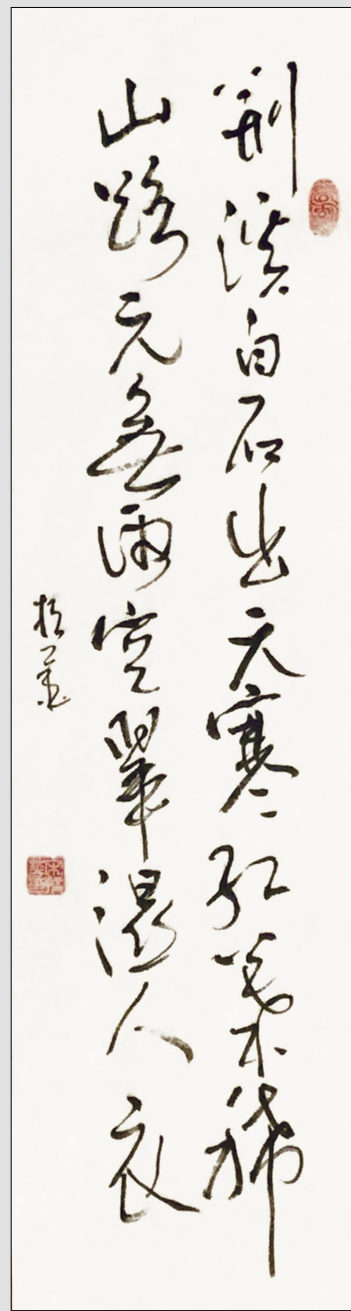 荆溪白石出天寒红葉稀
山路元無雨空翠濕人衣